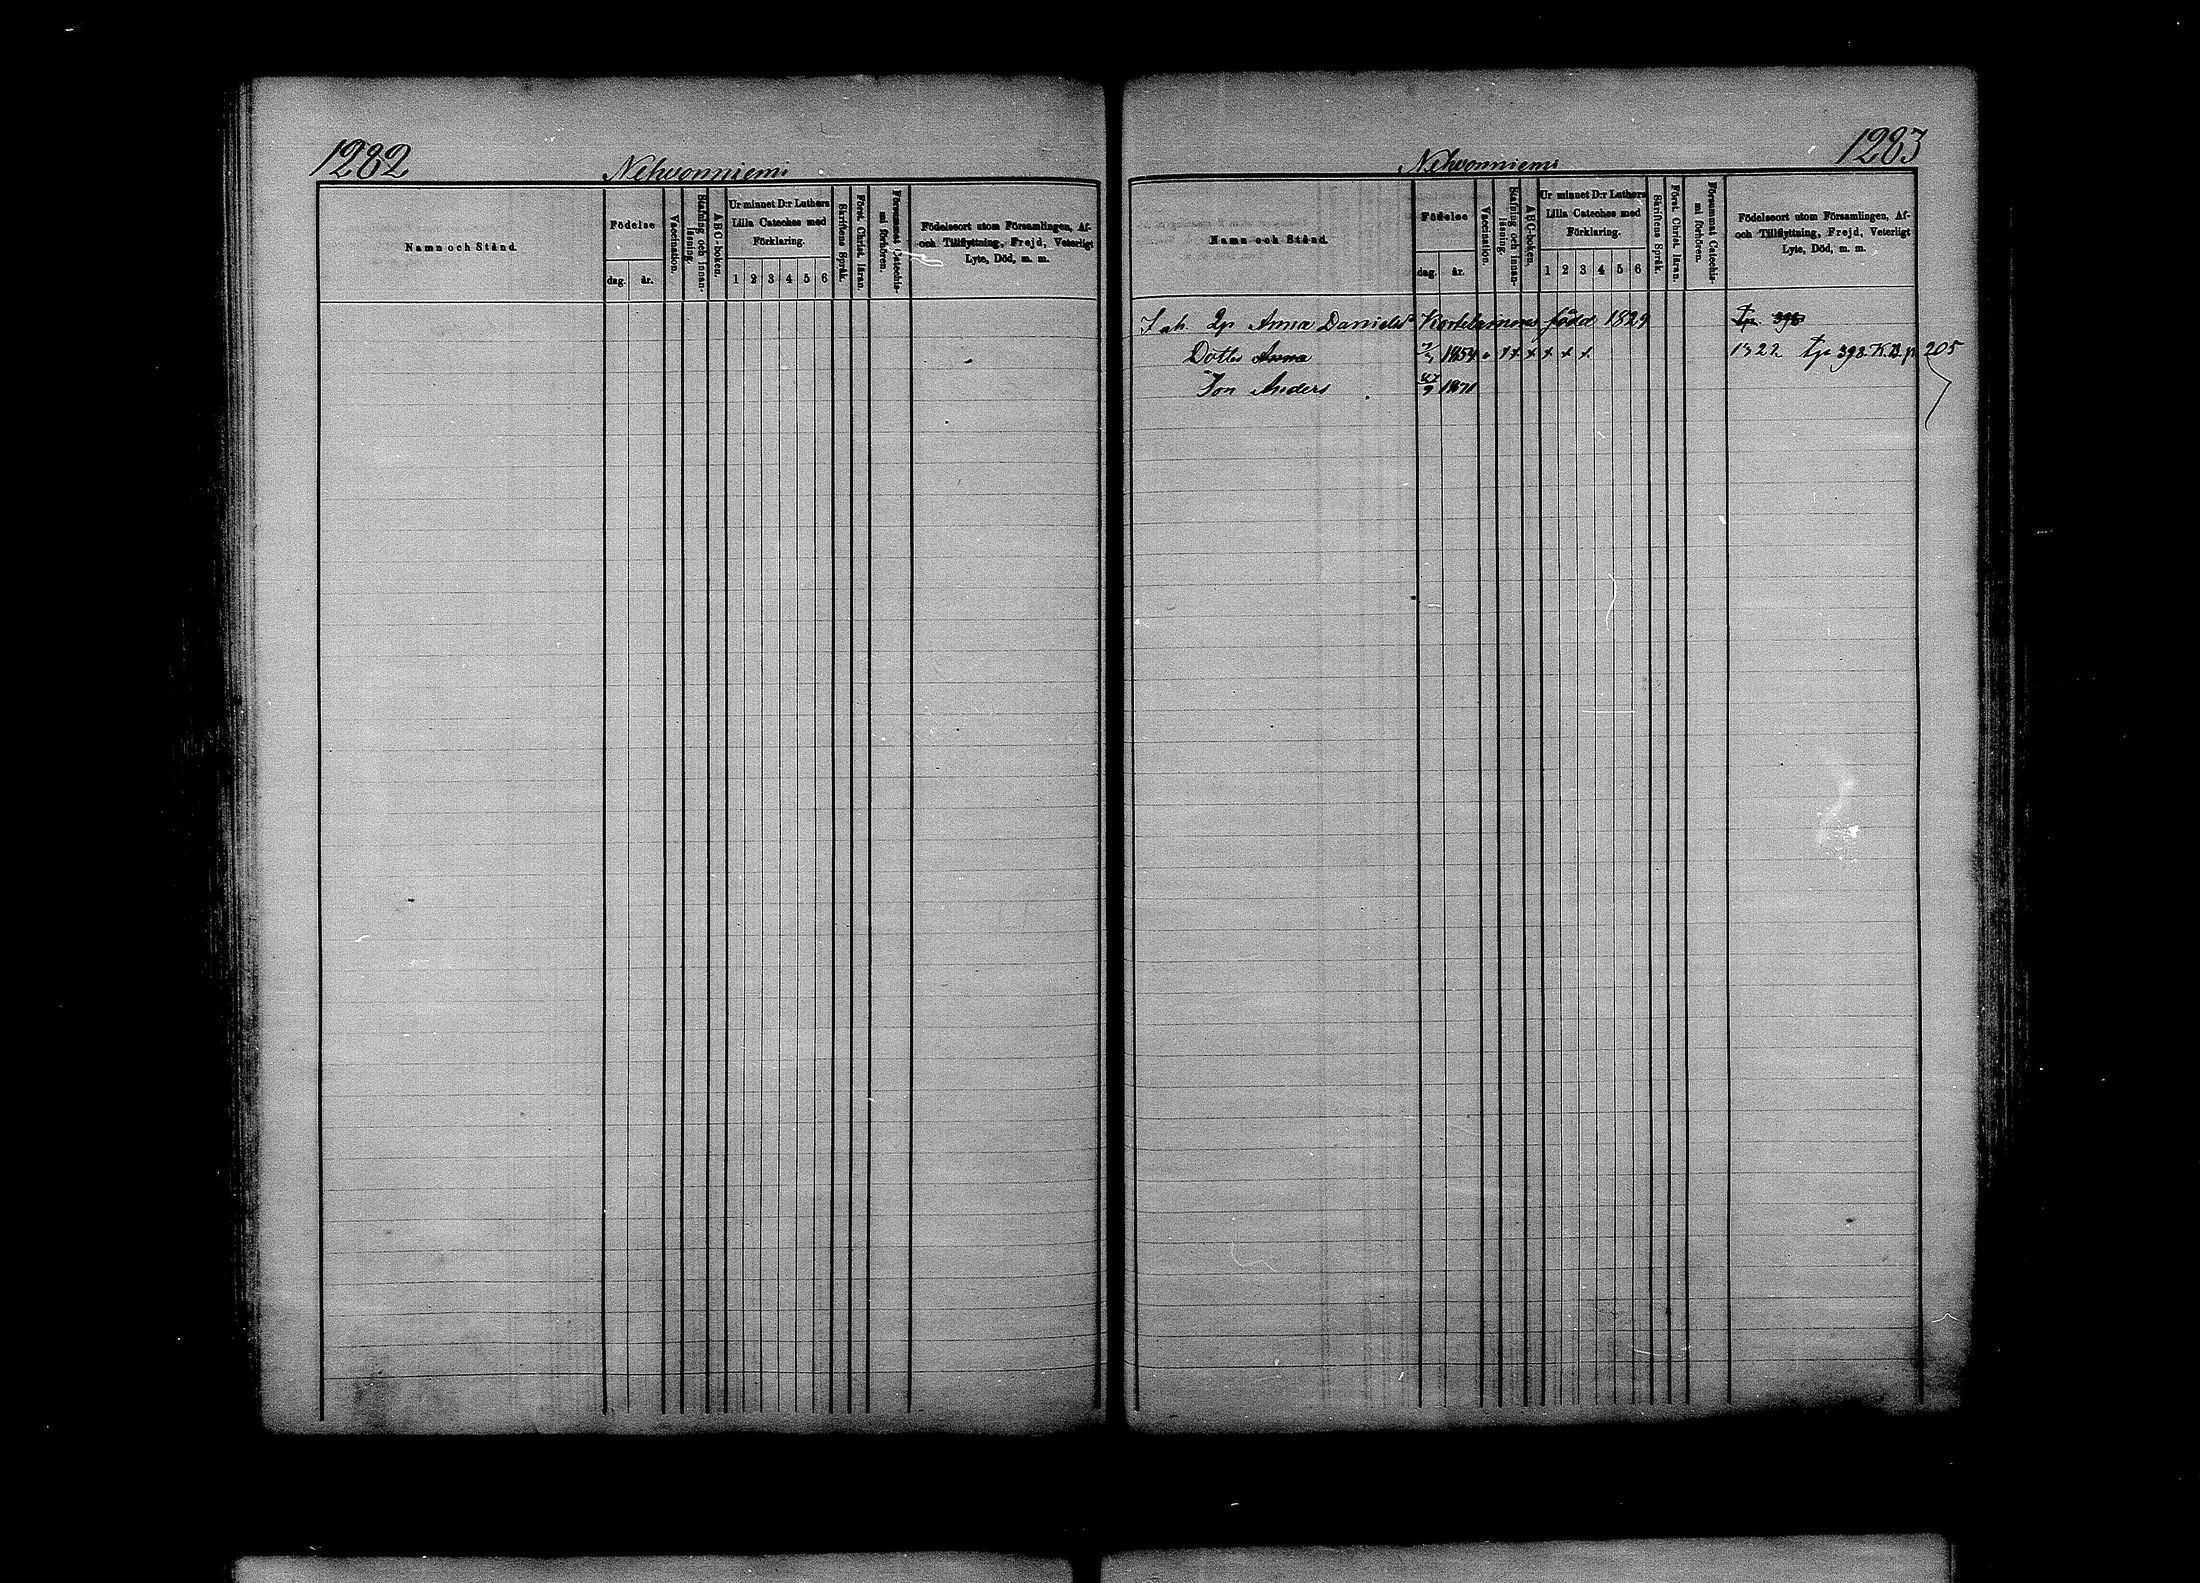 1282
Nehvonniemi
Namn och Stånd.
Födelse
dag. år.
Vaccination.
Stafning och innan-läsning.
ABC-boken.
Ur minnet D:r Luthers Lilla Cateches med Förklaring.
1 2 3 4 5 6
Skriftens Språk.
Först. Christ. läran.
Försummat Catechis-mi förhören.
Födelseort utom Församlingen, Af-
och Tillflyttning, Frejd, Veterligt
Lyte, Död, m. m.
1283
Nehvonniemi
Namn och Stånd.
Födelse
dag. år.
Vaccination.
Stafning och innan-läsning.
ABC-boken.
Ur minnet D:r Luthers Lilla Cateches med Förklaring.
1 2 3 4 5 6
Skriftens Språk.
Först. Christ. läran.
Försummat Catechis-mi förhören.
Födelseort utom Församlingen, Af-
och Tillflyttning, Frejd, Veterligt
Lyte, Död, m. m.
Anna Daniels född 1829 tp. 398
Dotter Anna 1854 x x x x 1322 tp 398. K.B.p 205
Son Anders 1871